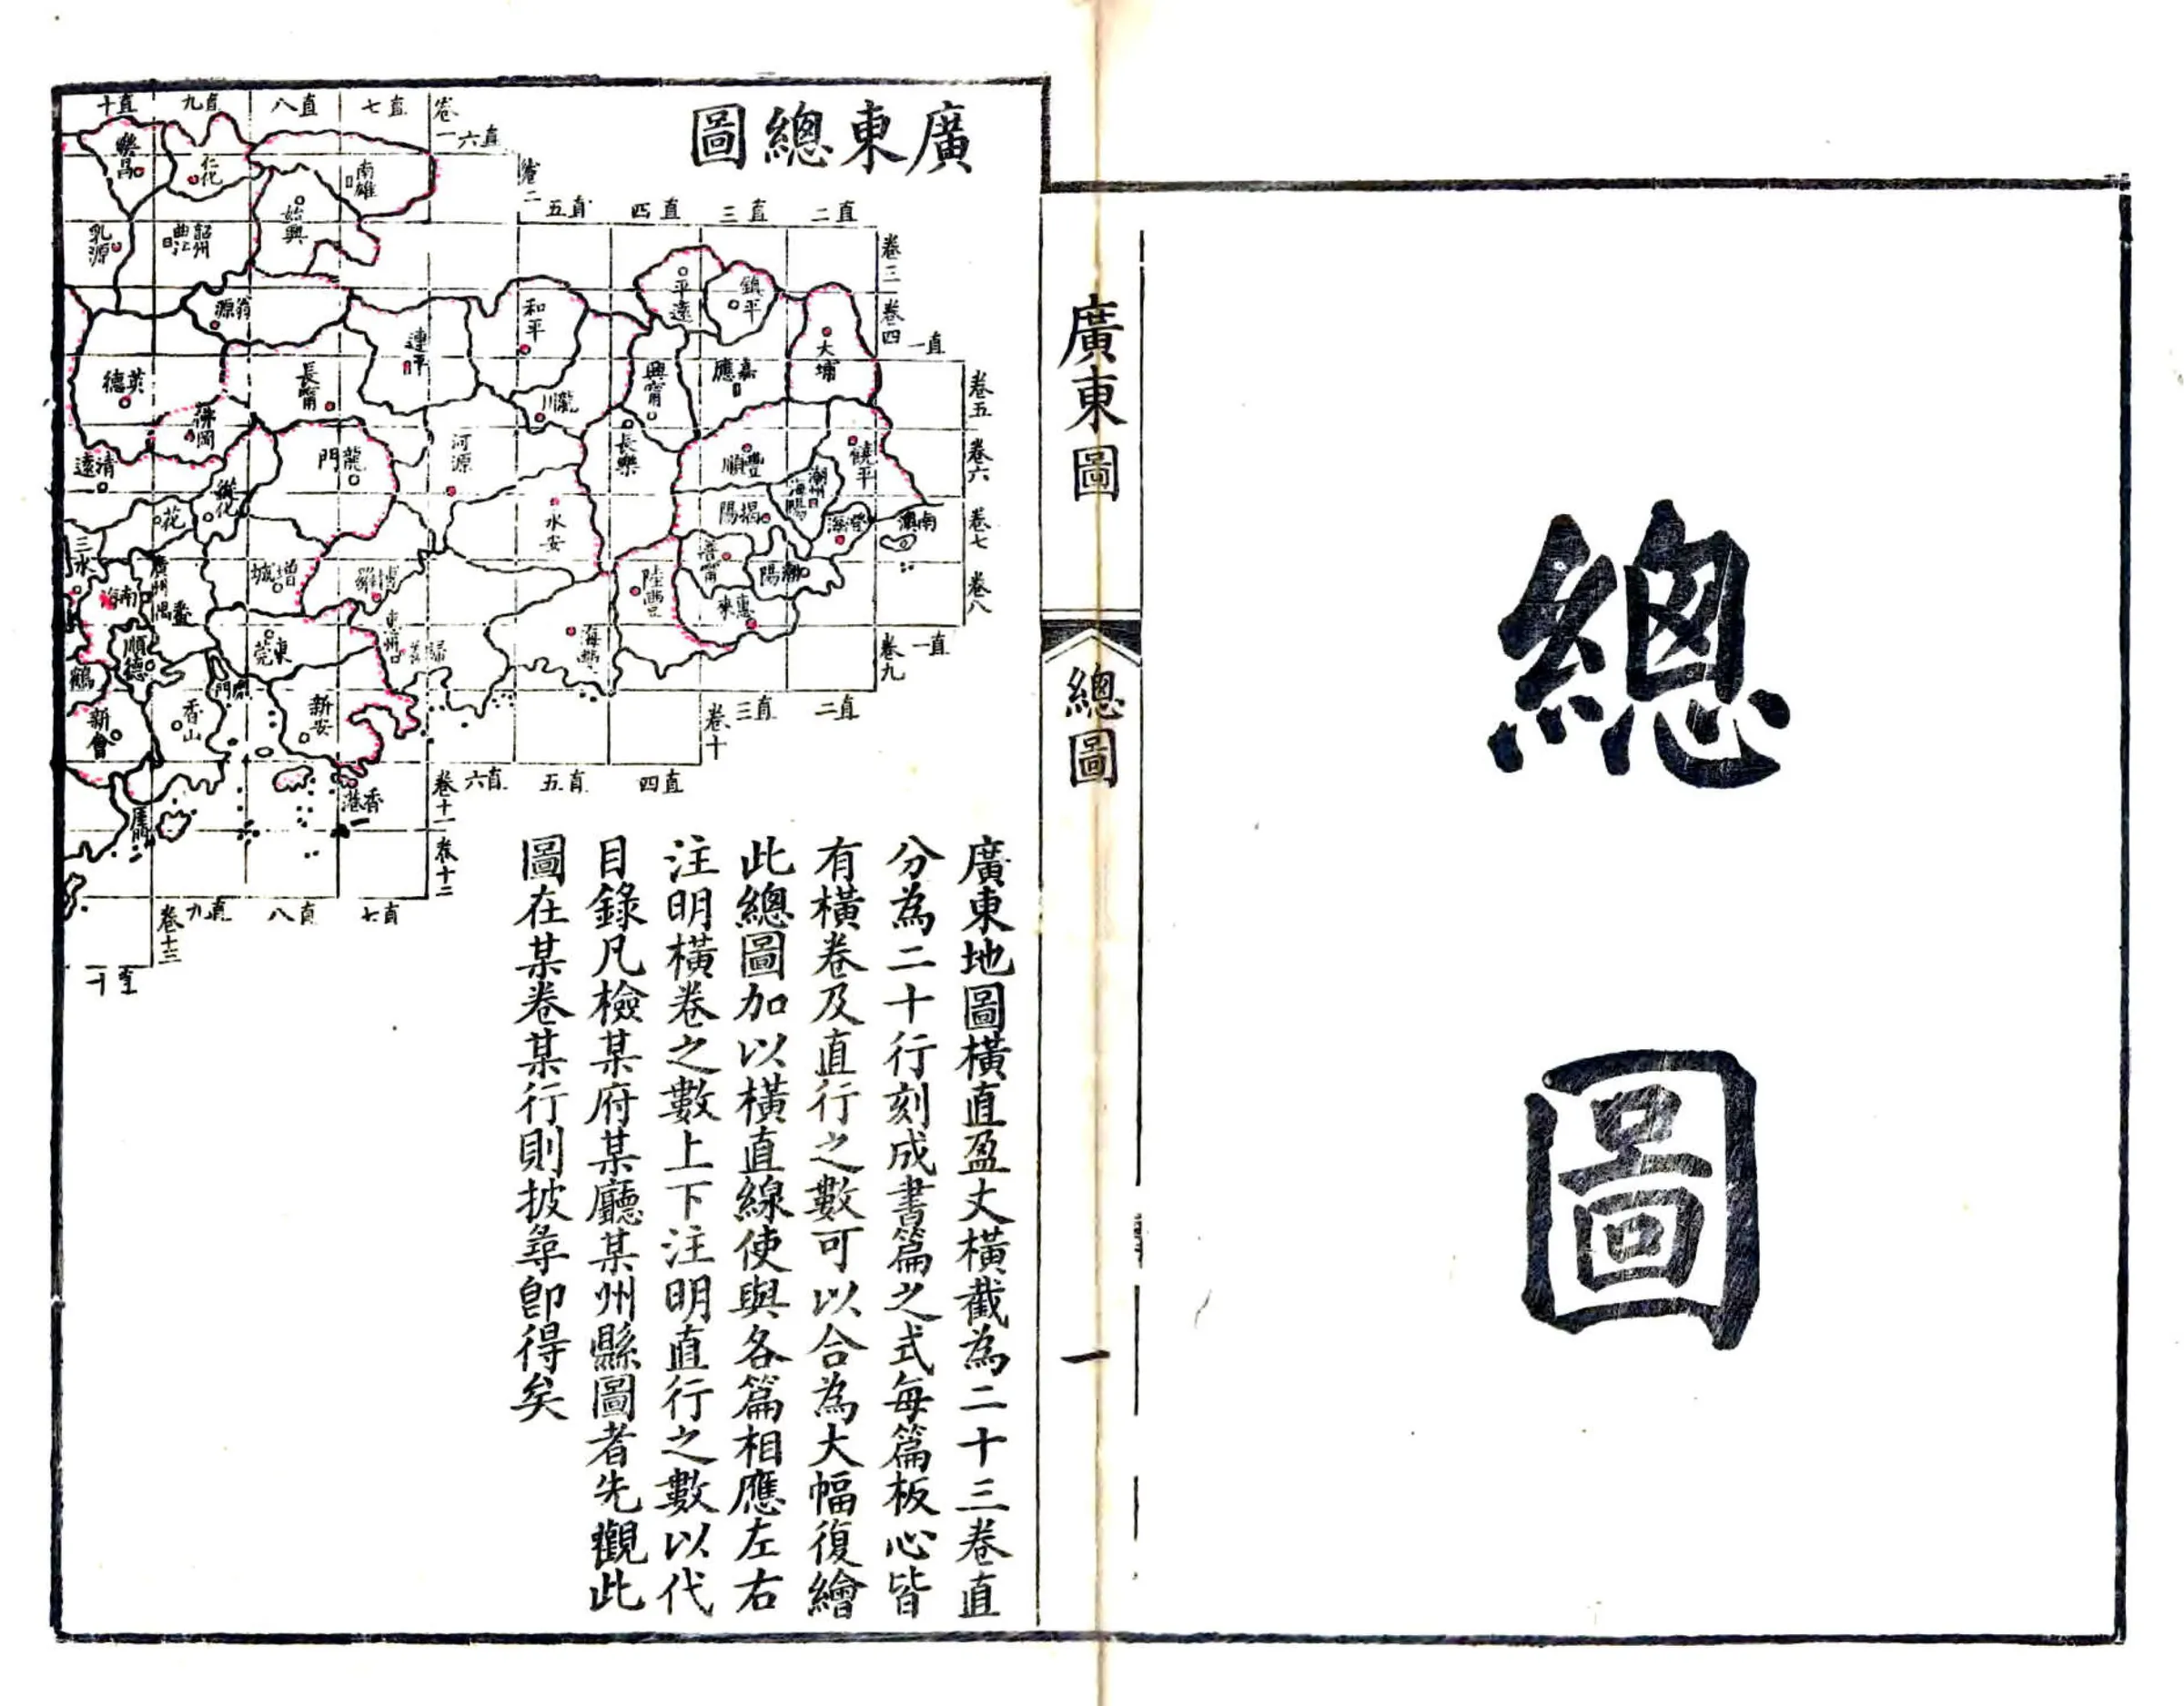 總圖
廣東圖
總圖
一
廣東總圖
廣東地圖橫直盈丈橫截為二十三卷直
分為二十行刻成書篇之式每篇板心皆
有橫卷及直行之數可以合為大幅復繪
此總圖加以橫直線使與各篇相應左右
注明橫卷之數上下注明直行之數以代
目錄凡檢某府某廳某州縣圖者先觀此
圖在某卷某行則披尋卽得矣
直十
直九
直八
直七
卷一
直六
卷二
直五
直四
直三
直二
卷三
卷四
直一
卷五
卷六
卷七
卷八
直一
卷九
直二
直三
卷十
直四
直五
直六
卷十一
卷十二
直七
直八
直九
卷十三
直十
南雄
始興
仁化
樂昌
韶州
曲江
乳源
翁源
英德
佛岡
清遠
長甯
連平
和平
龍川
河源
龍門
從化
花
三水
南海
廣州
番禺
順德
鶴
新會
香山
虎門
新安
香港
東莞
增城
博羅
惠州
歸善
永安
海豐
陸豐
長樂
興甯
平遠
鎮平
嘉應
大埔
豐順
饒平
潮州
海陽
揭陽
澄海
南澳
普甯
潮陽
惠來